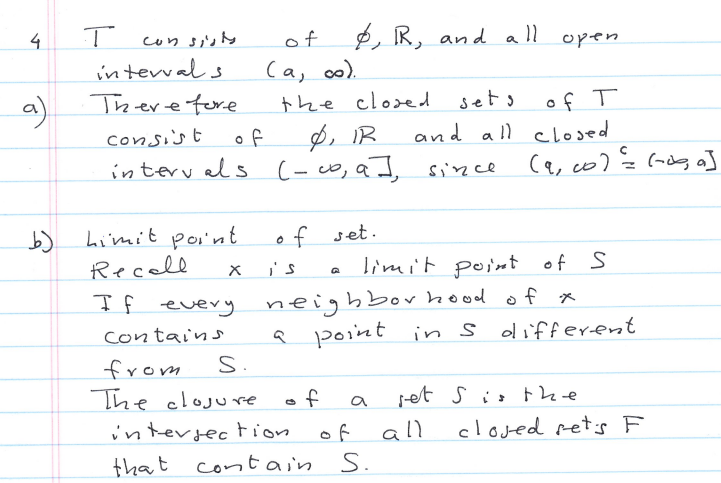 4 T consists of ∅, ℝ, and all open
intervals (a, ∞).
a) Therefore the closed sets of T
consist of ∅, ℝ and all closed
intervals (-∞, a], since (a, ∞)ᶜ = (-∞, a]
b) Limit point of set.
Recall x is a limit point of S
If every neighborhood of x
contains a point in S different
from S.
The closure of a set S is the
intersection of all closed sets F
that contain S.